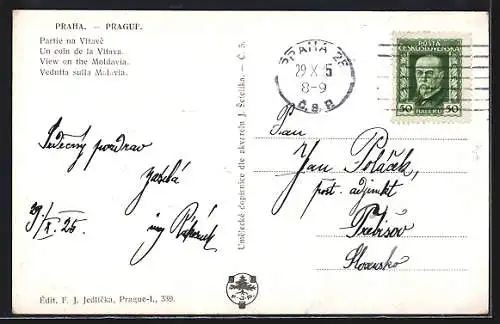 PRAHA. — PRAGUE.
Partie na Vltavě
Un coin de la Vltava.
View on the Moldavia.
Vedutta sulla Moldavia.
Srdečný pozdrav
zasílá
ing
29/X. 25.
Édit. F. J. Jedlička, Prague-I., 359.
Umělecké dopisnice dle akvarelu J. Šetelíka. - Č. 5.
PRAHA 25
29 X 5
8-9
Č.S.P.
POŠTA
ČESKOSLOVENSKÁ
50 HALÉŘŮ 50
Pan
Jan Poláček,
post. adjunkt
Trebišov
Slovensko